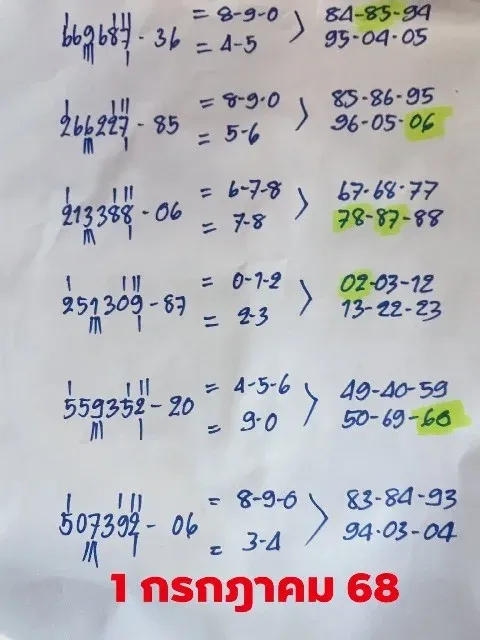 669687-36 = 8-9-0 > 84-85-94
= 4-5 95-04-05
266227-85 = 8-9-0 > 85-86-95
= 5-6 96-05-06
213388-06 = 6-7-8 > 67-68-77
= 7-8 78-87-88
251309-87 = 0-1-2 > 02-03-12
= 2-3 13-22-23
559352-20 = 4-5-6 > 49-40-59
= 9-0 50-69-60
507392-06 = 8-9-0 > 83-84-93
= 3-4 94-03-04
1 กรกฎาคม 68